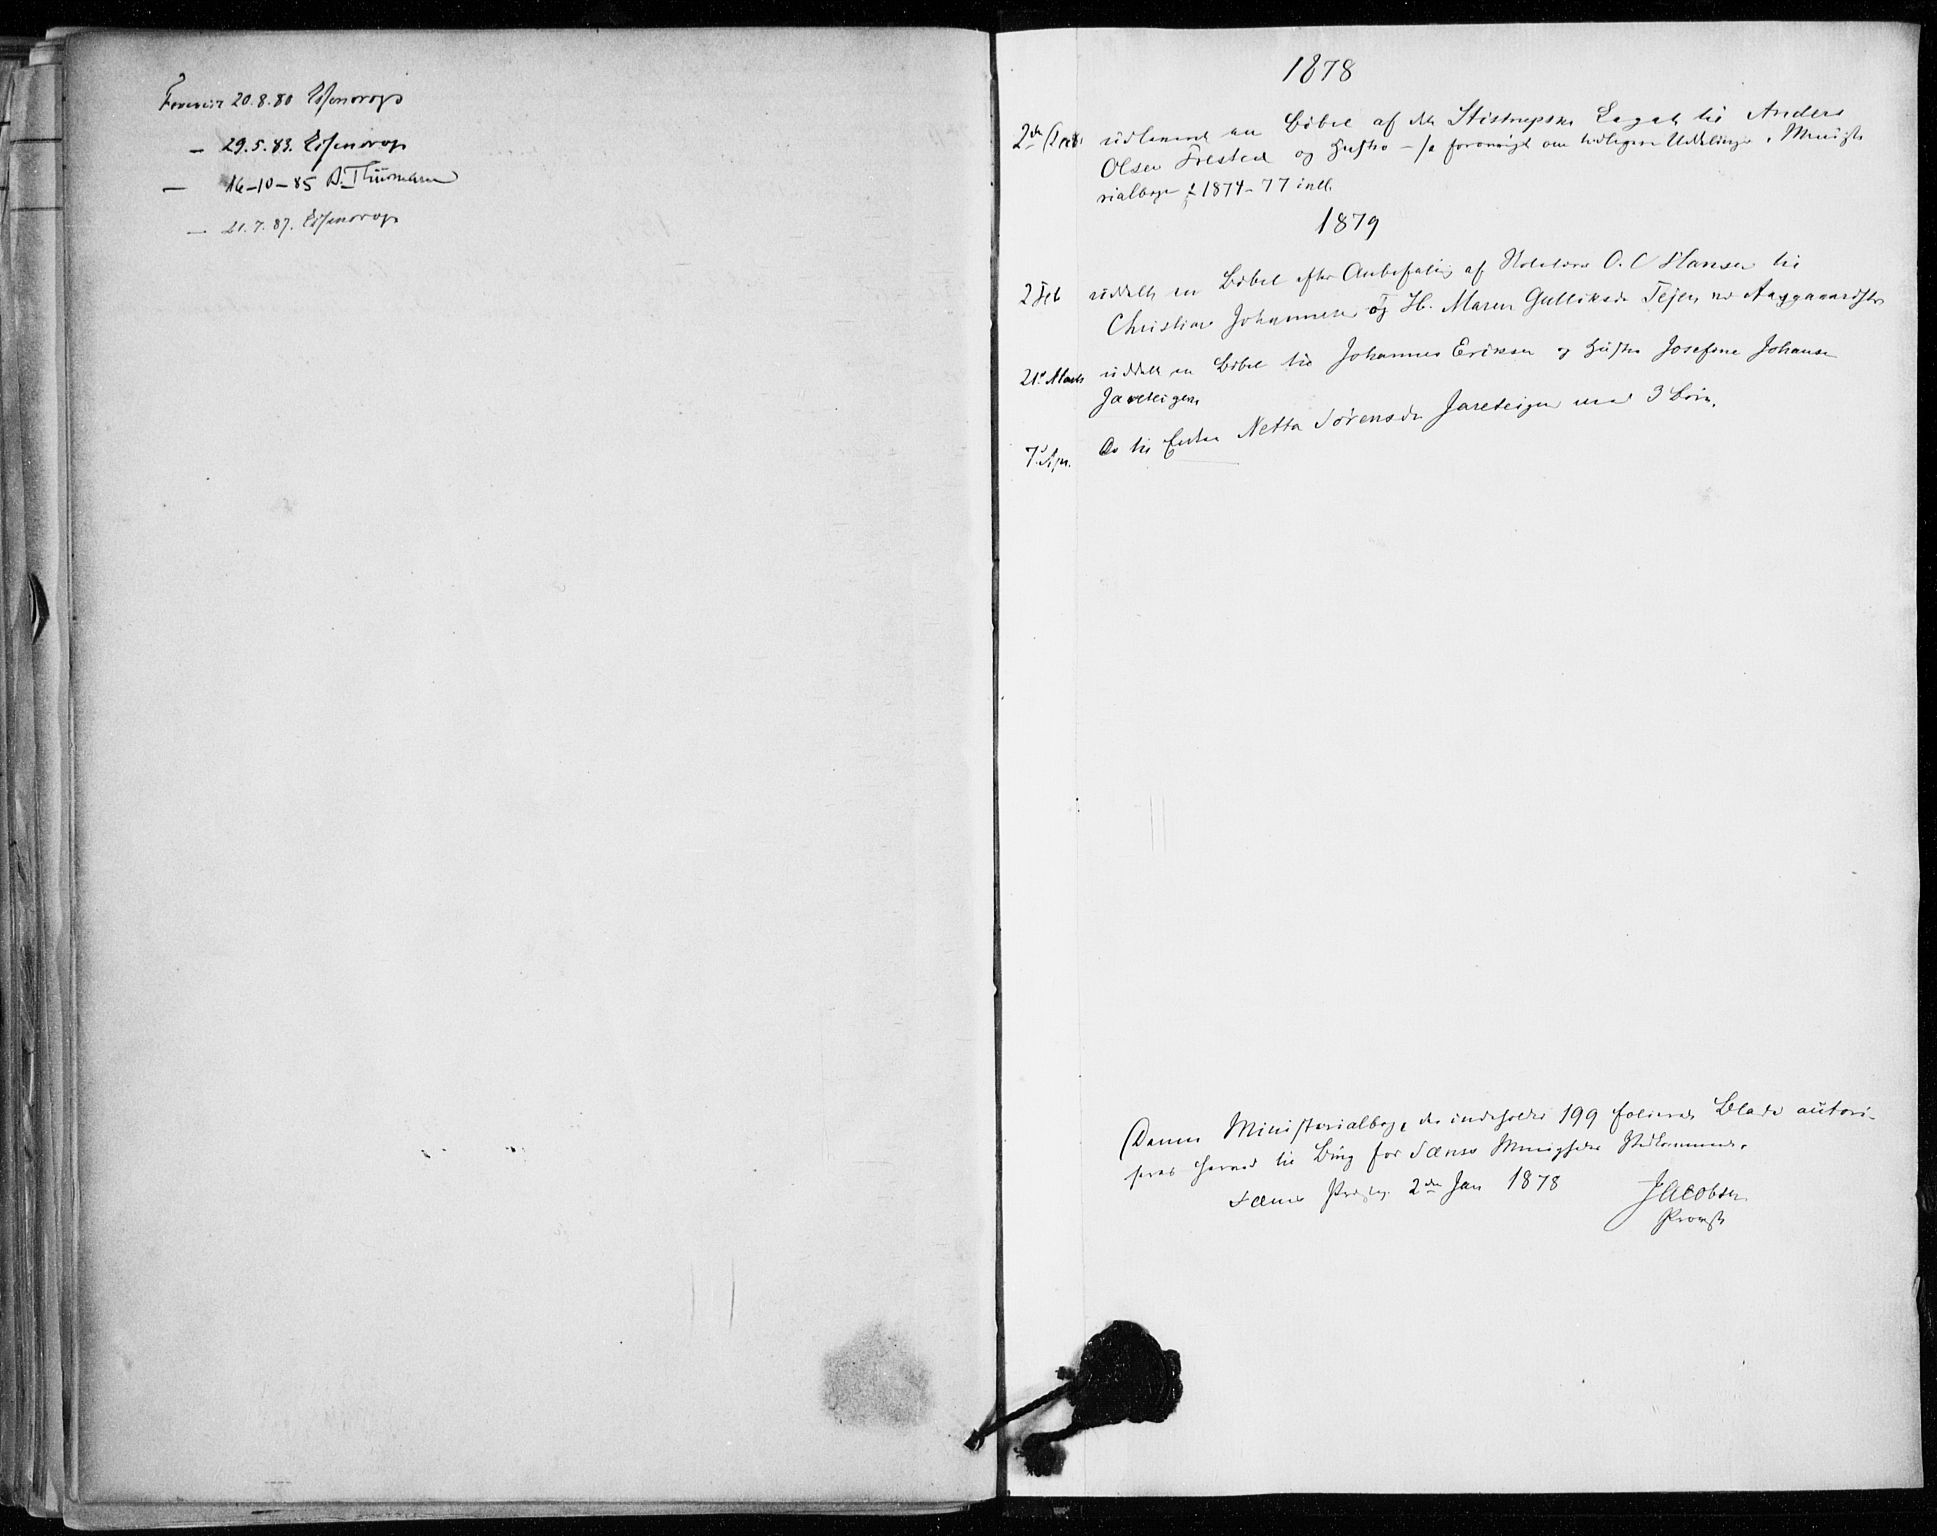 Forevist 20.8.80 Essendrop
— 29.5.83. Essendrop
— 16-10-85 Thurmann
— 21.7.87. Essendrop
1878
2de udleveret en Bibel af det Stistrupske Legat til Anders
Olsen Frested og Hustro — om tidligere Uddelinger i Ministe
rialbogen f 1874-77 incl.
1879
2 Feb uddelt en Bibel efter Anbefaling af O. C Hansen til
Christian Johannesen og H. Maren Gulliksdr Tejen
21 Marts uddelt en Bibel til Johannes Eriksen og Hustro Josefine Johansen
Jareteigen
7 Apr. Do til Enken Netta Sørensdr Jareteigen med 3 Børn.
Denne Ministerialbog, der indeholder 199 folierede Blade autori-
seres herved til Brug for Sems Menigheds Vedkommende.
Sems Prstg. 2den Jan 1878 Jacobsen
Provst